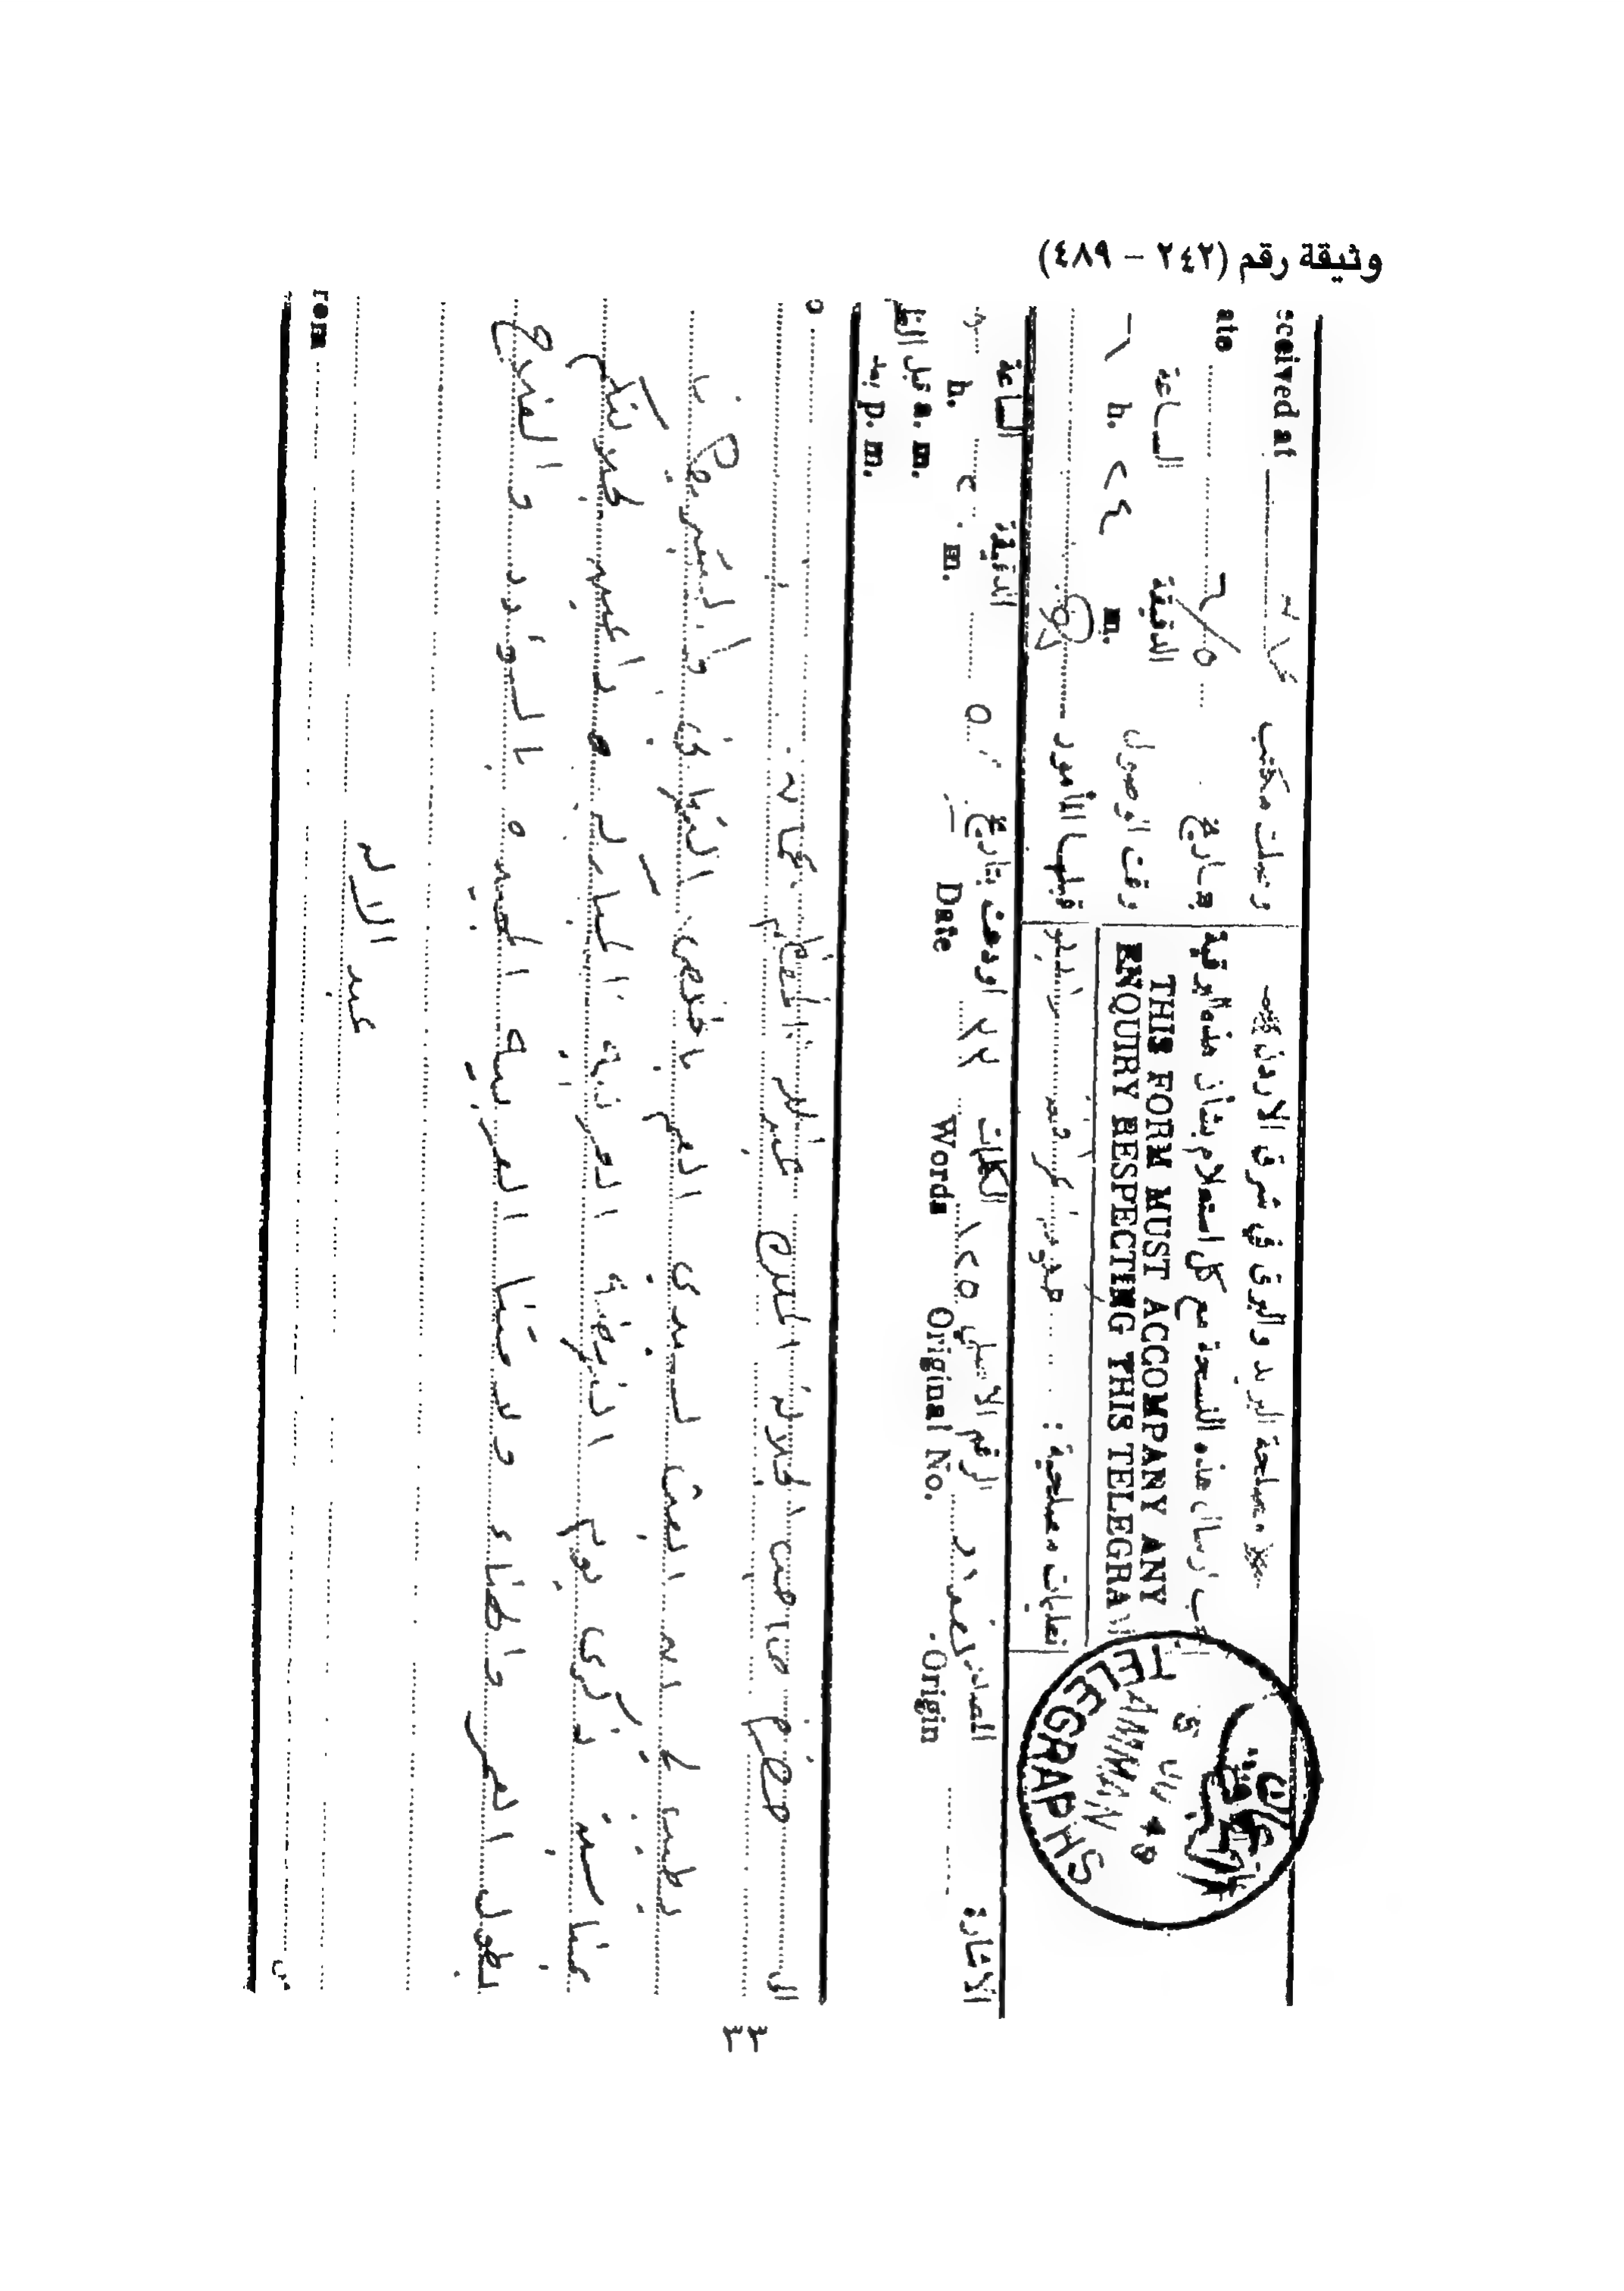 وثيقة رقم (٢٤٢ – ٤٨٩)
مصلحة البريد والبرق في شرق الاردن
يجب ارسال هذه النسخة مع كل استعلام بشأن هذه البرقية
THIS FORM MUST ACCOMPANY ANY
ENQUIRY RESPECTING THIS TELEGRAM
eceived at
وصلت مكتب
ate
بتاريخ ٦/٥
الساعة الدقيقة
٦ h. ٢٤ m. وقت الوصول
قبلها المأمور
تعليمات مصلحية :
TELEGRAPHS
AMMAN
الاشارة
المصدر بغداد الرقم الاصلي ١٢٥ الكلمات ٢٢ اودعت بتاريخ ٥
الساعة الدقيقة
Origin Original No. Words Date
h. m.
قبل الظهر a. m.
بعد p. m.
الى حضرة صاحب الجلالة الملك عبدالله المعظم عمان
o
يطيب لي ان ابعث لسيدي العم باخلص التهاني والتبريكات
بمناسبة ذكرى يوم النهضة العربية المباركة داعيا لجلالتكم
بطول العمر والهناء ولامتنا العربية المجيدة بالسؤدد والفلاح
عبد الاله
من
rom
٣٣